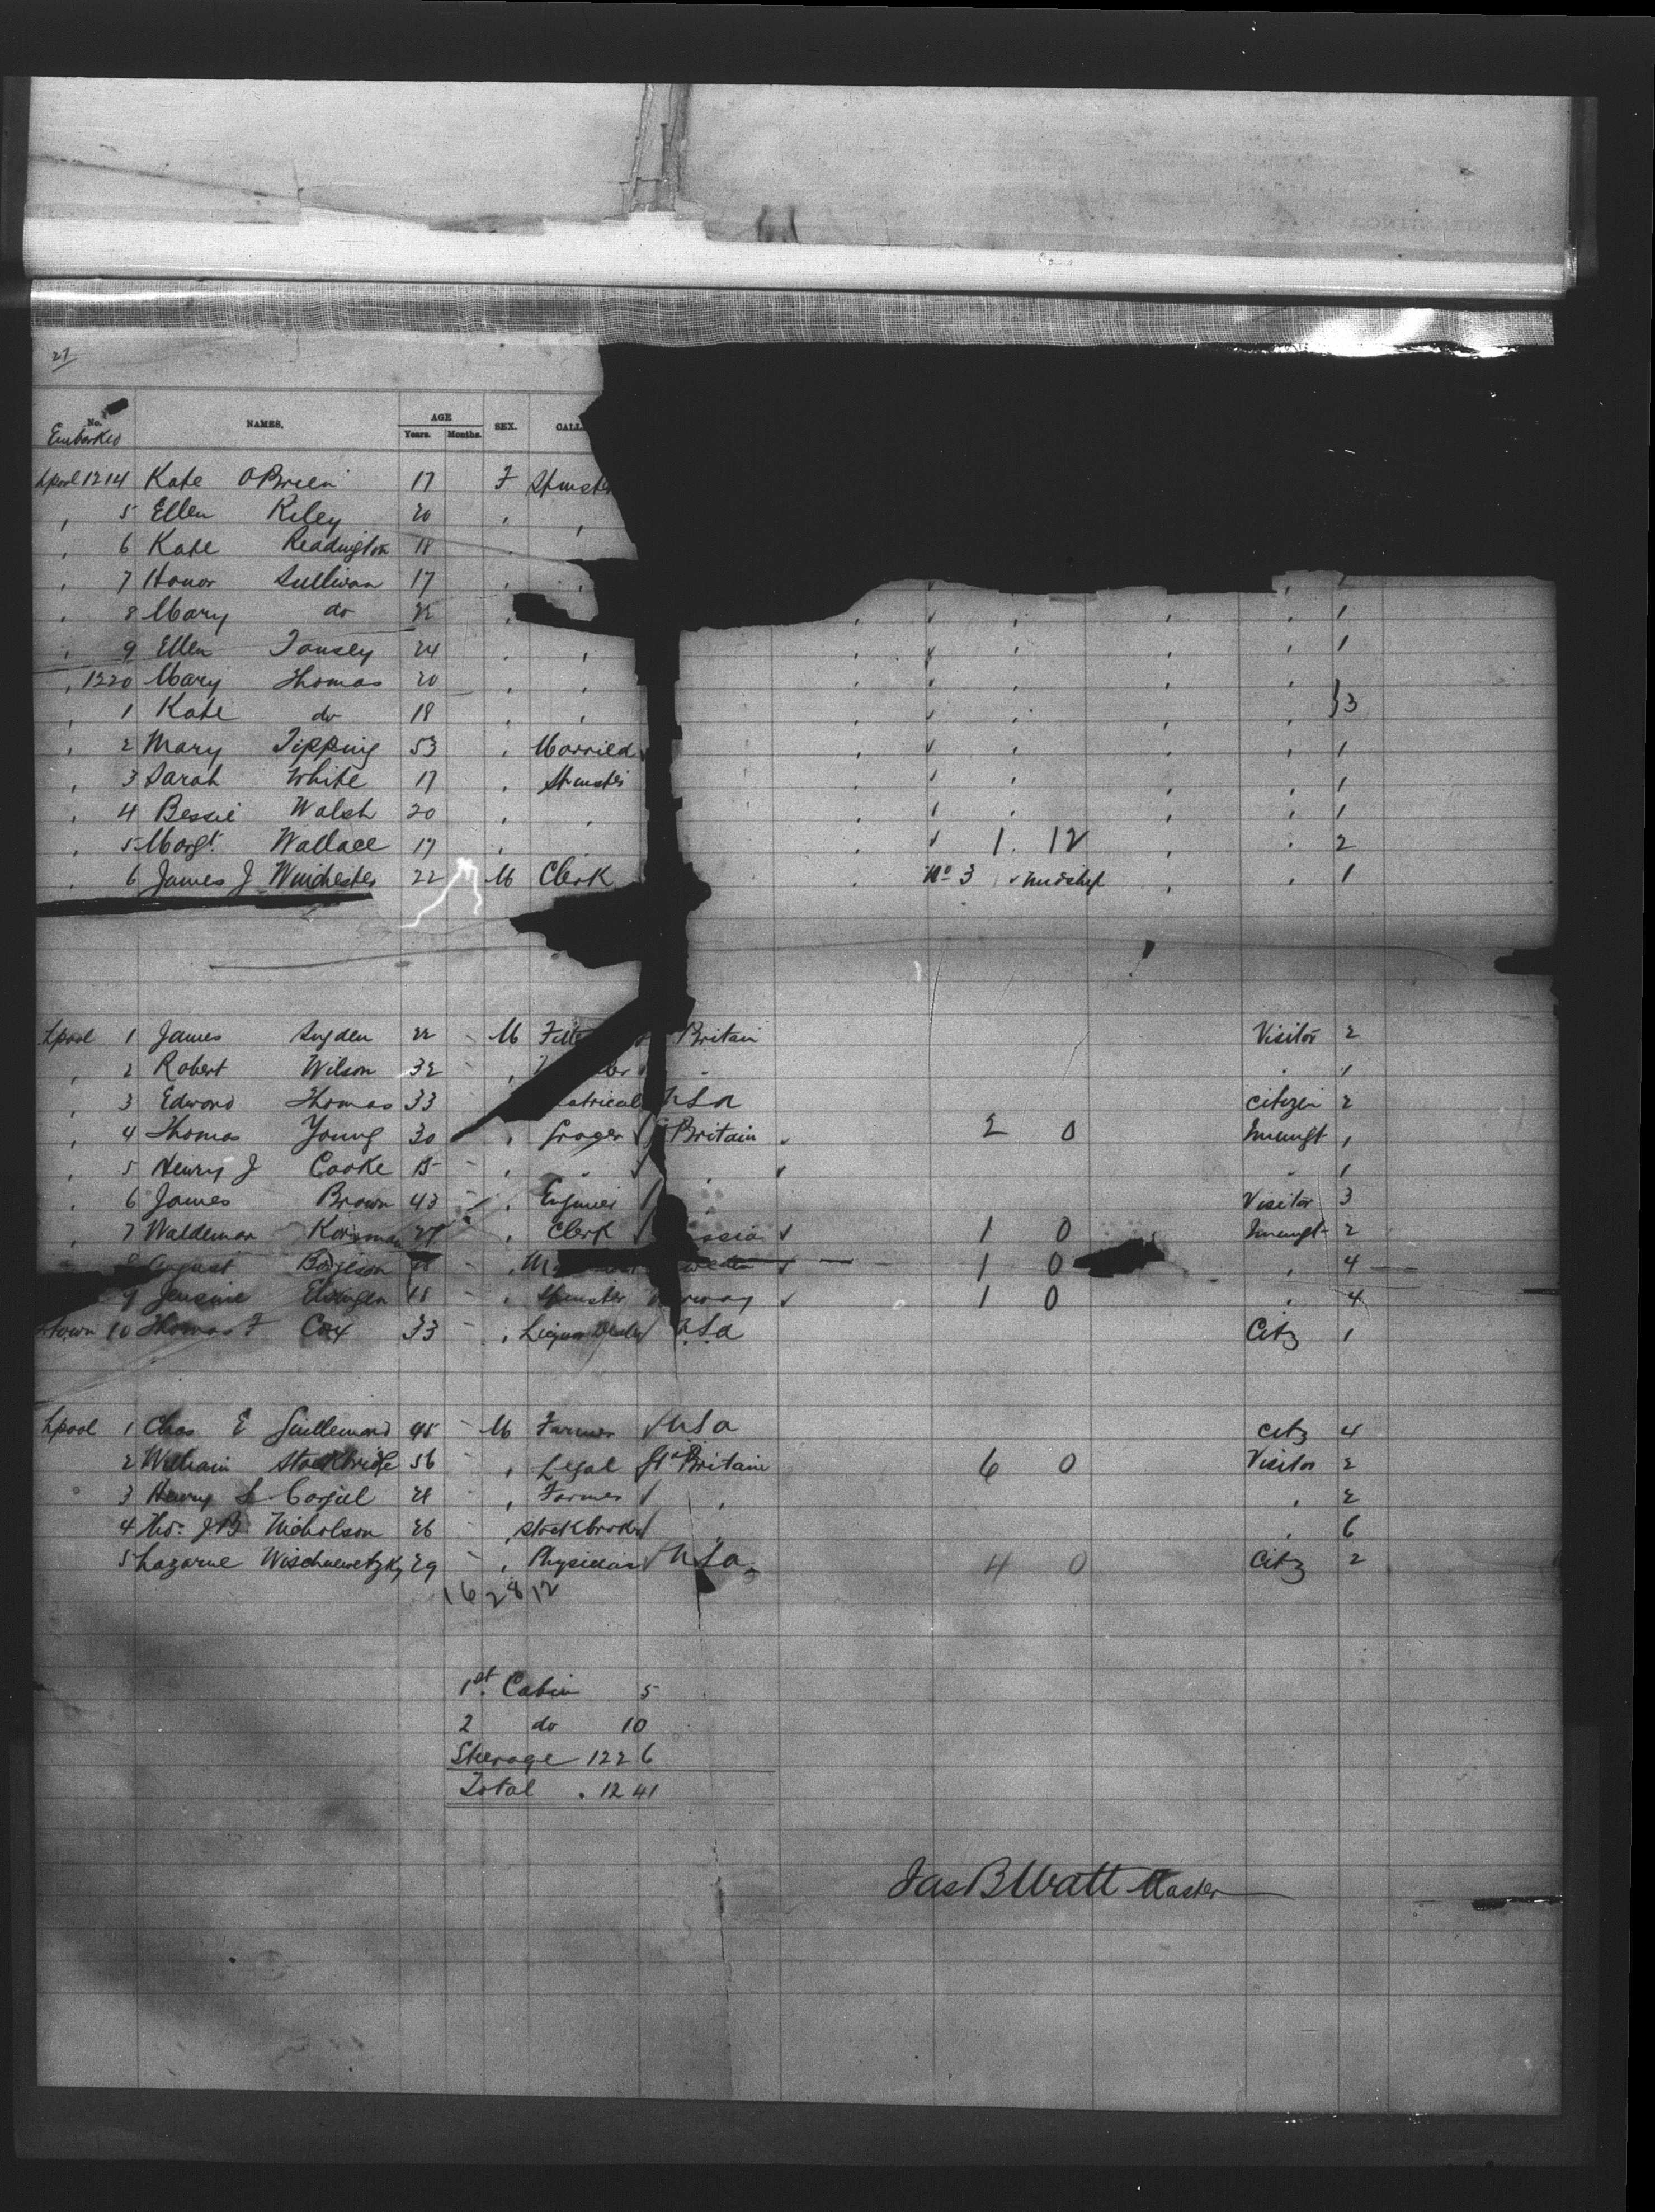 27
No. NAMES. AGE SEX. CALL
Embarked Years. Months.
Lpool 1214 Kate O'Brien 17 F Spinster
" 5 Ellen Riley 20 " "
" 6 Kate Readington 18
" 7 Honor Sullivan 17 " " "
" 8 Mary do " " " " 1
" 9 Ellen Tansey 24 " " " " " " 1
" 1220 Mary Thomas 20 " " " " " "
" 1 Kate do 18 " " " " " " } 3
" 2 Mary Tipping 53 " Married " " " " 1
" 3 Sarah White 17 " Spinster " " " 1
" 4 Bessie Walsh 20 " " " " " " 1
" 5 Margt. Wallace 17 " " 1. 12 " " 2
" 6 James J Winchester 22 M Clerk " No 3 midship " " 1
Lpool 1 James Sugden 22 - M Britain Visitor 2
" 2 Robert Wilson 32 - " " " 1
" 3 Edward Thomas 33 USA Citizen 2
" 4 Thomas Young 30 " Grocer Gt Britain 2 0 Emmgt 1
" 5 Henry J Cooke 15 - " " " " 1
" 6 James Brown 43 - " Engineer " Visitor 3
" 7 Waldemar 27 " Clerk ssia 1 0 Emmgt 2
August 1 0 " 4
9 18 " Spinster rway 1 0 " 4
town 10 Thomas F Cox 33 " Liquor Dealer USA Citz 1
Lpool 1 Chas E Guillemard 45 - M Farmer USA Citz 4
2 William Stockbridge 56 " Legal Gt Britain 6 0 Visitor 2
3 Henry 28 - " Farmer " " 2
4 Thos. J B Nicholson 26 - " Stockbroker " " 6
5 Lazarue Wischnewetzky 29 - " Physician USA 4 0 Citz 2
16 28 12
1st Cabin 5
2 do 10
Steerage 1226
Total . 1241
Jas B Watt Master